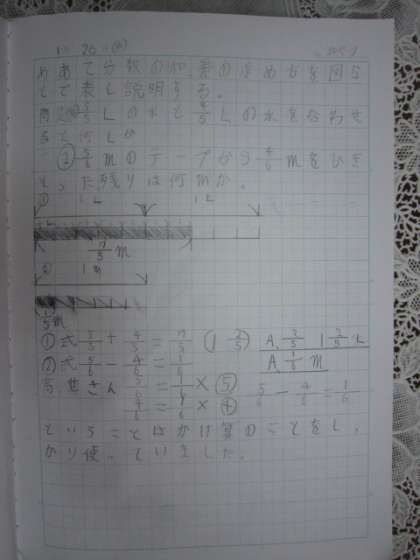 めあて分数の和、差の求め方を図な
どで表し説明する。
問①3/5Lの水と4/5Lの水を合わせ
ると何Lか
②5/6mのテープから4/6mをひき
とった残りは何mか。
① 1L 1L
7/5 m
② 1m
①式 3/5 + 4/5 = 7/5 (1 2/5) A、7/5 1 2/5 L
②式 5/6 − 4/6 = 1/6 A 1/6 m
5/6 = 1/6 × ⑤ 5/6 − 4/6 = 1/6
4/6 = 1/6 × ④
ということはかけ算のことをし、
かり使っていました。